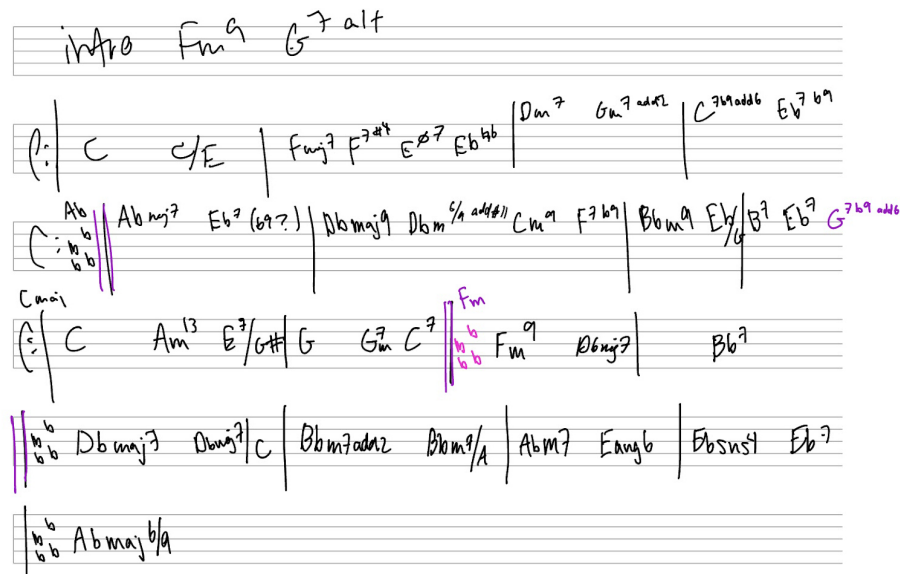 intro Fm9 G7 alt
C C/E | Fmaj7 F7#4 Eø7 Eb7b6 | Dm7 Gm7 add2 | C7b9add6 Eb7b9
Ab
bbbb Abmaj7 Eb7 (b9?) | Dbmaj9 Dbm6/9 add#11 Cm9 F7b9 | Bbm9 Eb/G | B7 Eb7 G7b9 add6
Cmaj Fm
C Am13 E7/G# | G Gm7 C7 || bbbb Fm9 Dbmaj7 | Bb7
bbbb Dbmaj7 Dbmaj7/C | Bbm7add2 Bbm7/A | Abm7 Eaug6 | Ebsus4 Eb7
bbbb Abmaj6/9